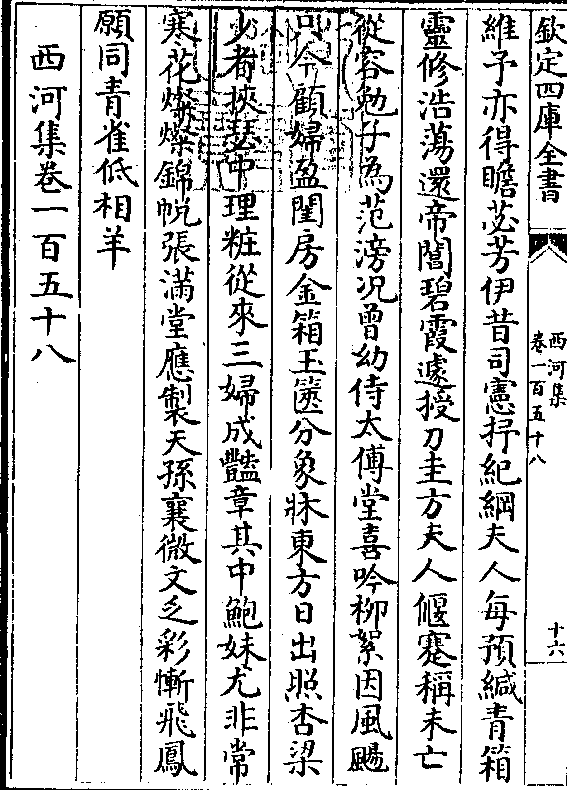 欽定四庫全書
西河集
卷一百五十八
十六
維予亦得瞻苾芳伊昔司憲抒紀綱夫人每預緘青箱
靈修浩蕩還帝閽碧霞遽授刀圭方夫人偃蹇稱未亡
從容勉子為范滂况曾幼侍太傅堂喜吟柳絮因風颺
只今顧婦盈閨房金箱玉篋分象牀東方日出照杏梁
少者挾瑟中理粧從來三婦成豔章其中鮑妹尤非常
寒花燦燦錦帨張滿堂應製天孫襄微文乏彩慚飛鳳
願同青雀低相羊
西河集卷一百五十八